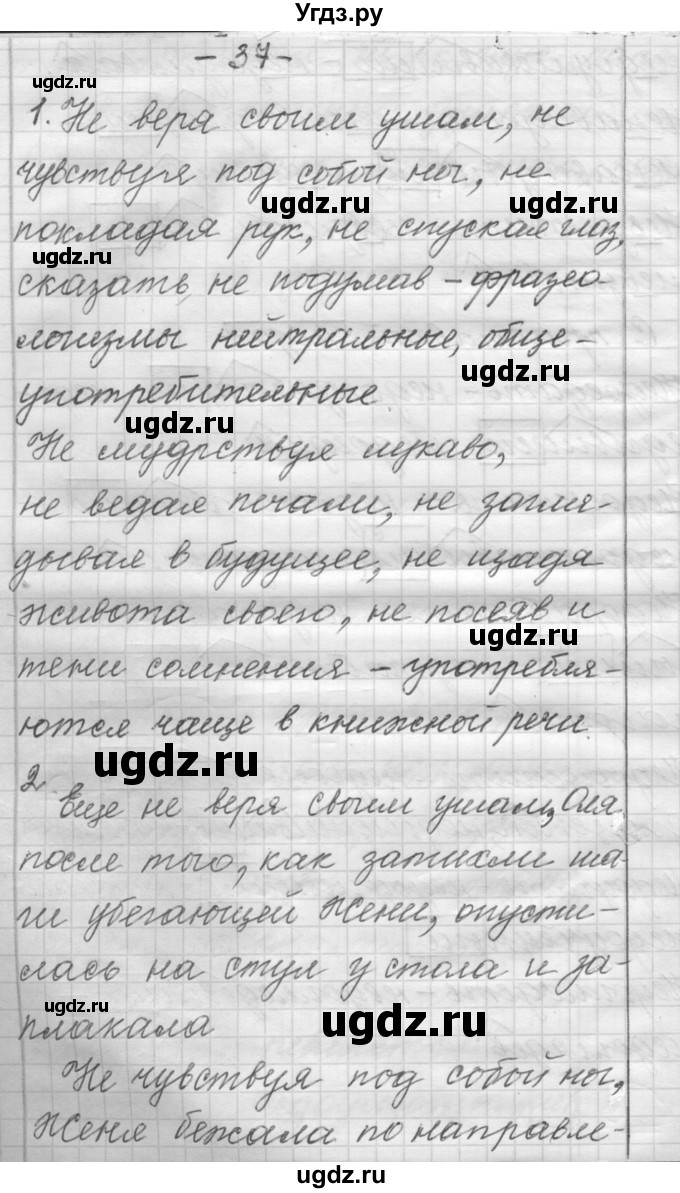 Угдз.ру
- 37 -
ugdz.ru
1. Не веря своим ушам, не
чувствуя под собой ног, не
ugdz.ru ugdz.ru
покладая рук, не спуская глаз,
ugdz.ru
сказать, не подумав - фразео-
логизмы нейтральные, обще-
ugdz.ru
употребительные
ugdz.ru
Не мудрствуя лукаво,
не ведая печали, не загля-
дывая в будущее, не щадя
живота своего, не посеяв и
ugdz.ru
тени сомнения - употребля-
ются чаще в книжной речи.
ugdz.ru
2. Еще не веря своим ушам, Оля
после того, как затихли ша-
ги убегающей Жени, опусти-
лась на стул у стола и за-
ugdz.ru
плакала
ugdz.ru
Не чувствуя под собой ног,
Женя бежала по направле-
ugdz.ru